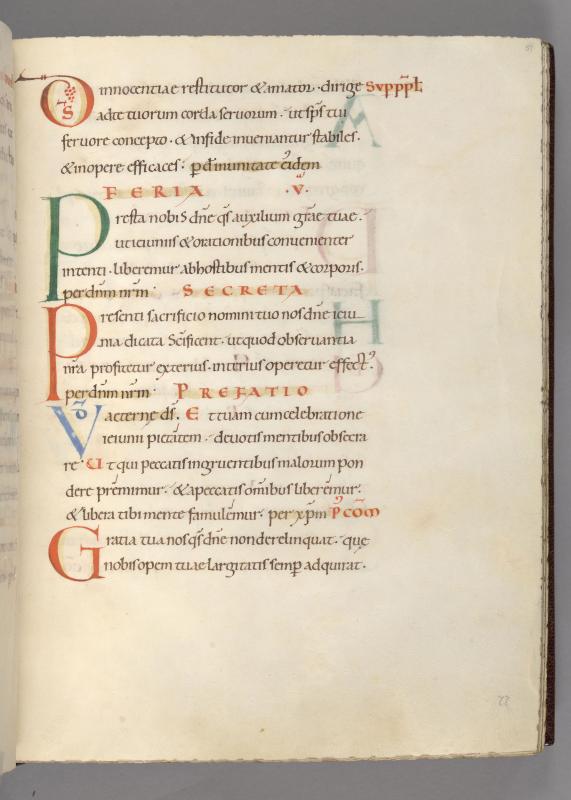 DS innocentiae restitutor & amator · dirige Svp̄pp̄l̄
adte tuorum corda seruorum · ut sp̄s tui
feruore concepto · & infide inueniantur stabiles ·
& inopere efficaces · p̄ d̄ inunitate eiusdem
FERIA · V ·
Presta nobis dn̄e qs̄ auxilium grae tuae ·
ut ieiuniis & orationibus conuenienter
intenti · liberemur abhostibus mentis & corporis ·
per dn̄m nr̄m · SECRETA
Presenti sacrificio nomini tuo nos dn̄e ieiu
nia dicata sc̄ificent · ut quod obseruantia
nr̄a profitetur exterius · interius operetur effectu ·
per dn̄m nr̄m · PREFATIO
VD aeterne ds̄ · Et tuam cum celebratione
ieiunii pietatem · deuotis mentibus obsecra
re · Ut qui peccatis ingruentibus malorum pon
dere premimur · & apeccatis om̄ibus liberemur ·
& libera tibi mente famulemur · per xp̄m P̄ COM̄
Gratia tua nos qs̄ dn̄e non derelinquat · que
& nobis opem tuae largitatis semp̄ adquirat ·